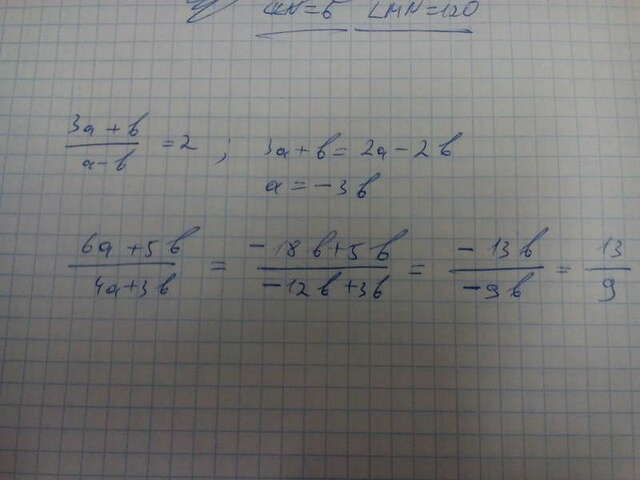 =5 ∠MN=120
(3a+b)/(a-b) = 2 ; 3a+b = 2a-2b
a = -3b
(6a+5b)/(4a+3b) = (-18b+5b)/(-12b+3b) = (-13b)/(-9b) = 13/9